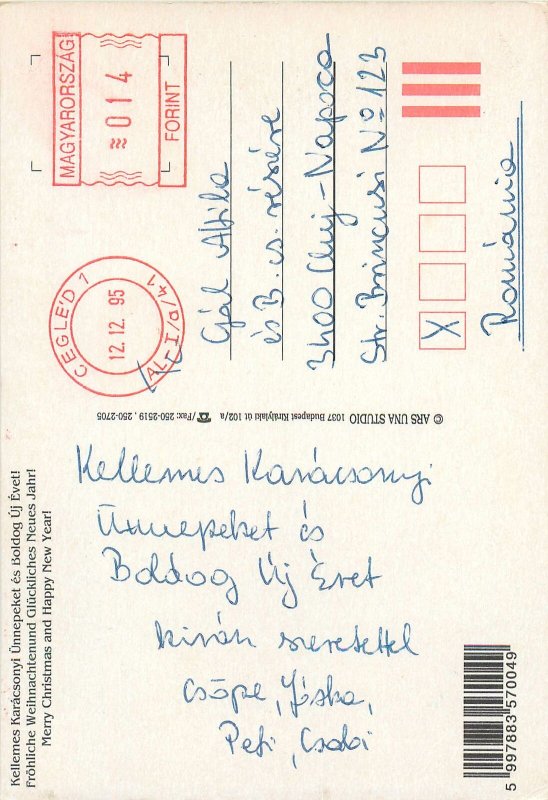 Kellemes Karácsonyi Ünnepeket és Boldog Új Évet!
Fröhliche Weihnachtenund Glückliches Neues Jahr!
Merry Christmas and Happy New Year!
Kellemes Karácsonyi
Ünnepeket és
Boldog Új Évet
kíván szeretettel
Csöpe, Jóska,
Peti, Csabi
5 997883 570049
© ARS UNA STUDIO 1037 Budapest Királylaki út 102/a ☎/Fax: 250-2519, 250-2705
CEGLÉD 1
12.12.95
AL-I/a/41
MAGYARORSZÁG
014
FORINT
Gál Attila
és B. cs. részére
3400 Cluj-Napoca
Str. Brâncusi Nº 123
X
Románia